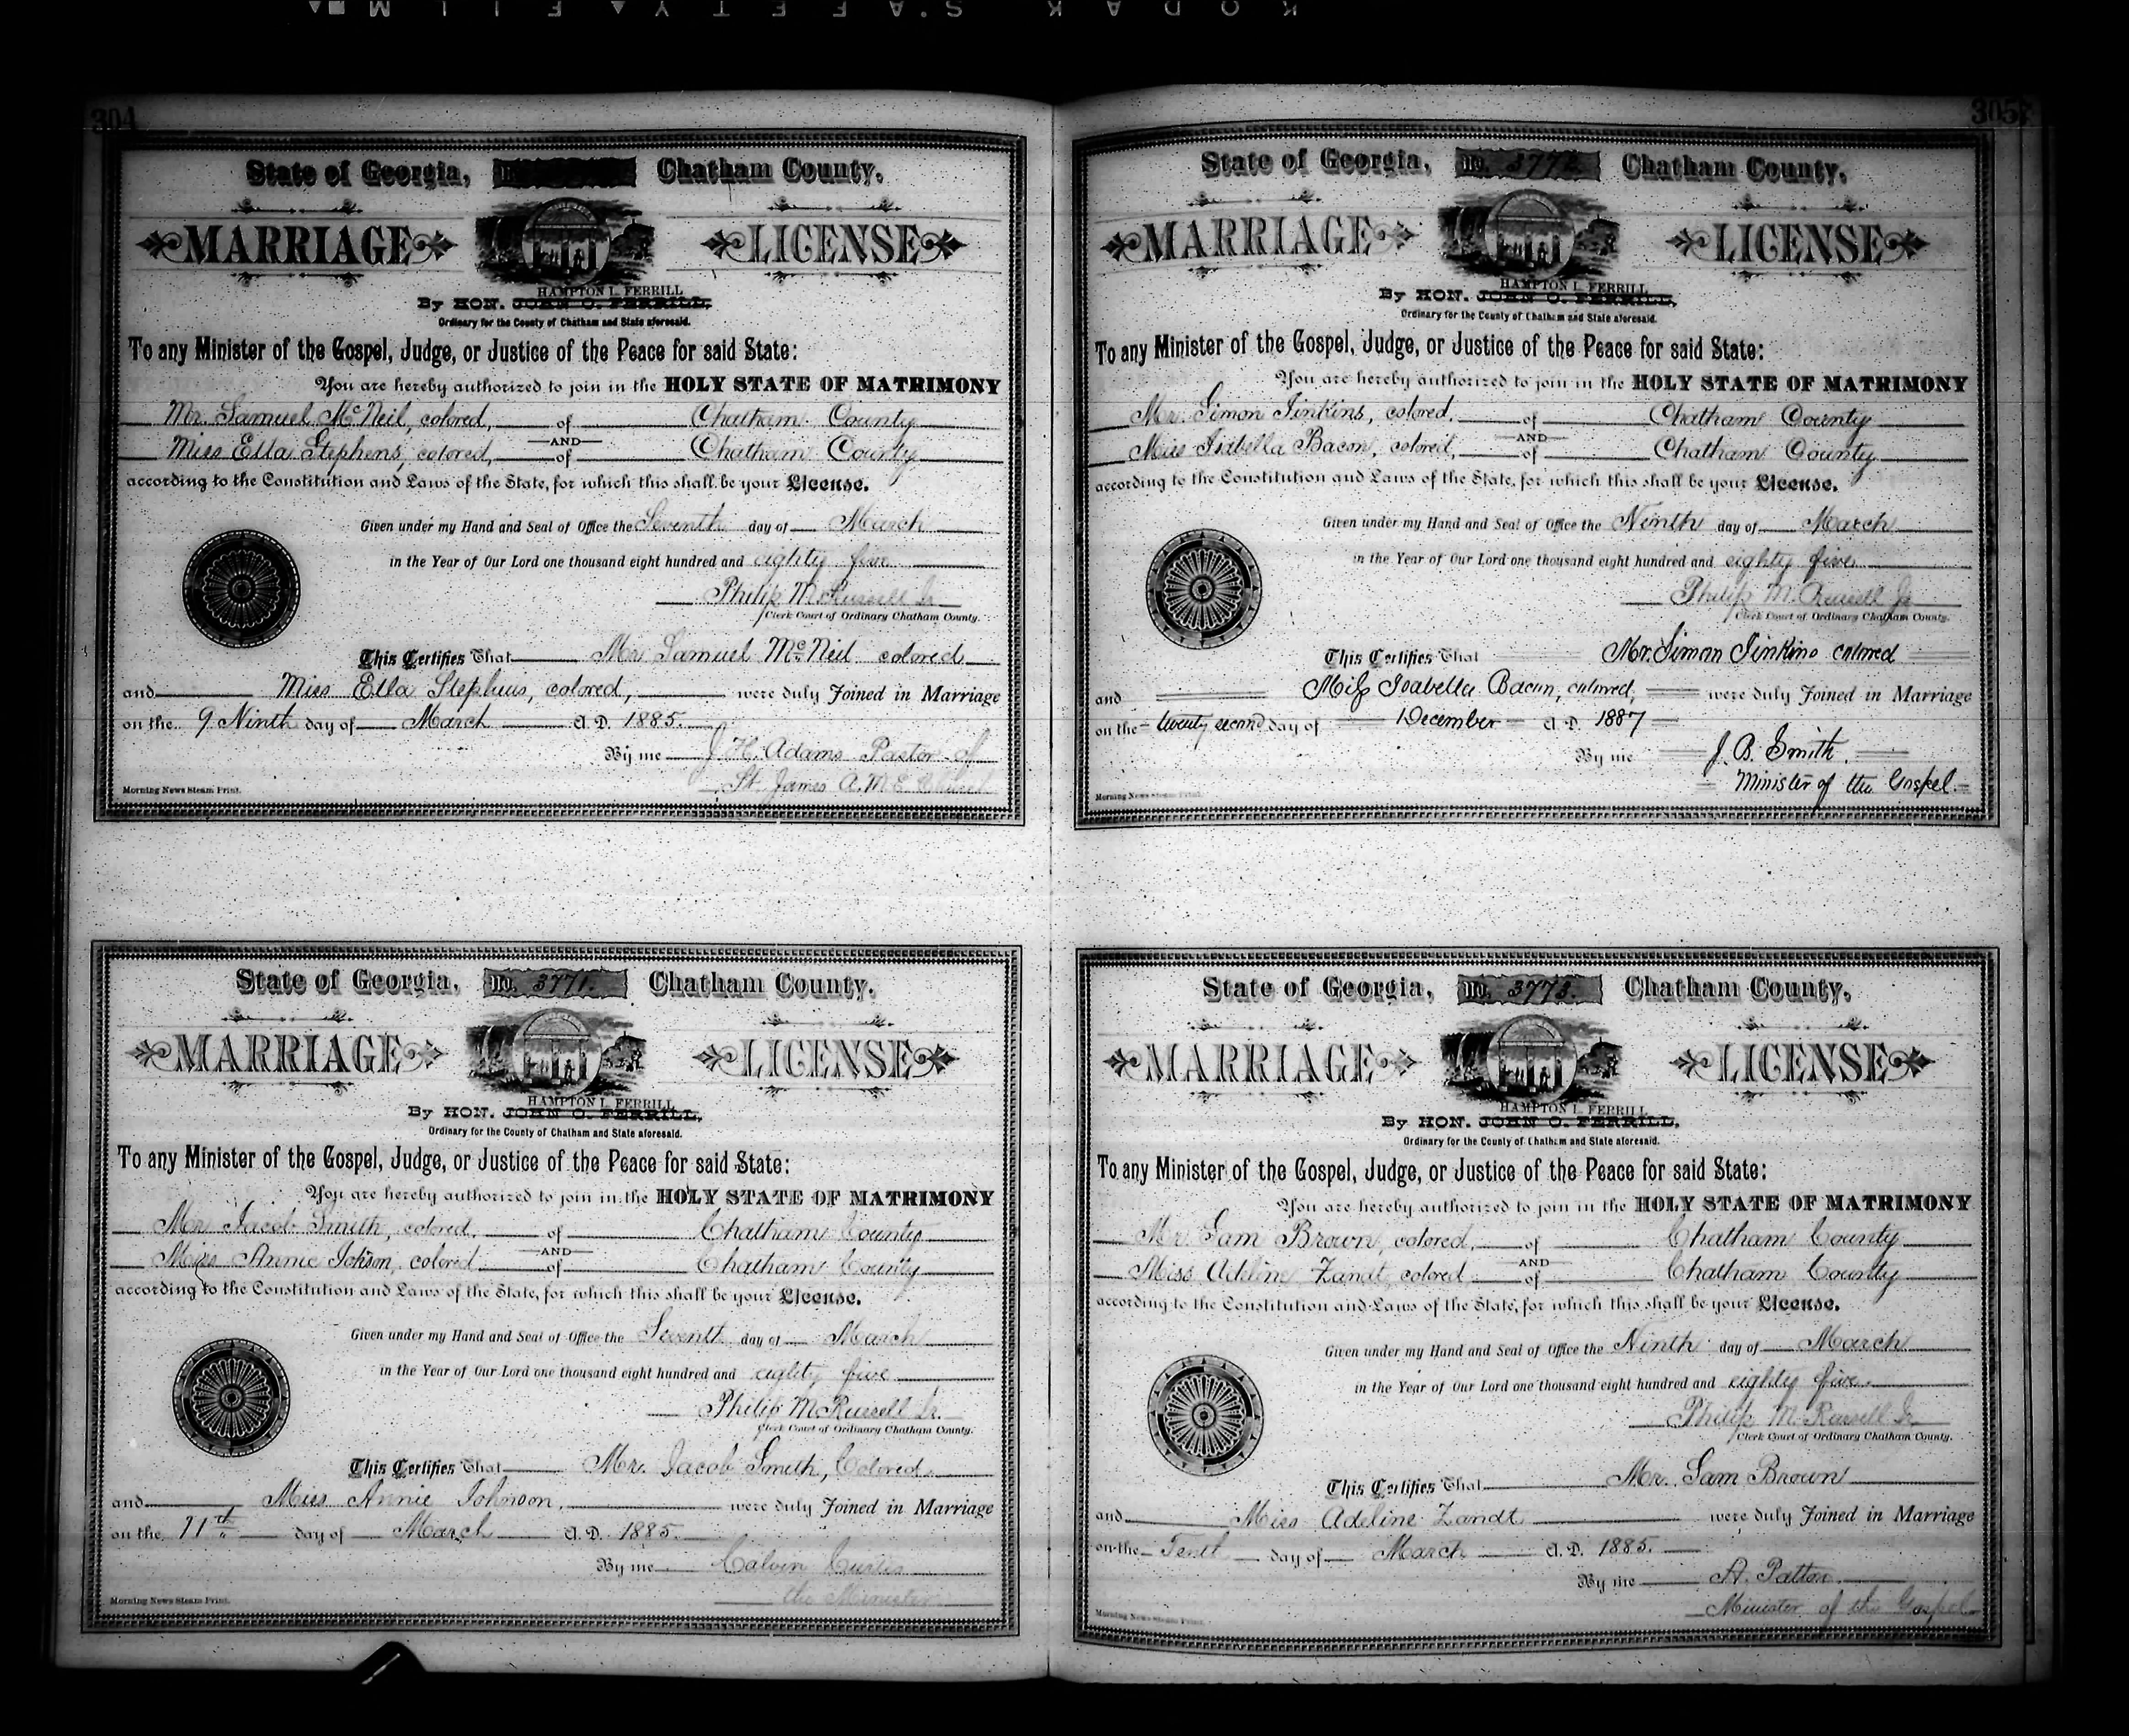 KODAK SAFETY FILM
304
State of Georgia, Chatham County.
MARRIAGE LICENSE
HAMPTON L. FERRILL
By HON. JOHN O. FERRILL,
Ordinary for the County of Chatham and State aforesaid.
To any Minister of the Gospel, Judge, or Justice of the Peace for said State:
You are hereby authorized to join in the HOLY STATE OF MATRIMONY
Mr. Samuel McNeil, colored, of Chatham County
AND
Miss Ella Stephens, colored, of Chatham County
according to the Constitution and Laws of the State, for which this shall be your License.
Given under my Hand and Seal of Office the Seventh day of March
in the Year of Our Lord one thousand eight hundred and eighty five
Philip M. Russell Jr.
Clerk Court of Ordinary Chatham County.
This Certifies That Mr. Samuel McNeil colored
and Miss Ella Stephens, colored, were duly Joined in Marriage
on the 9 Ninth day of March A. D. 1885.
By me J. H. Adams Pastor of
St. James A.M.E. Church
Morning News Steam Print.
State of Georgia, No. 3771. Chatham County.
MARRIAGE LICENSE
HAMPTON L. FERRILL
By HON. JOHN O. FERRILL,
Ordinary for the County of Chatham and State aforesaid.
To any Minister of the Gospel, Judge, or Justice of the Peace for said State:
You are hereby authorized to join in the HOLY STATE OF MATRIMONY
Mr. Jacob Smith, colored, of Chatham County
AND
Miss Annie Johson, colored of Chatham County
according to the Constitution and Laws of the State, for which this shall be your License.
Given under my Hand and Seal of Office the Seventh day of March
in the Year of Our Lord one thousand eight hundred and eighty five
Philip M. Russell Jr.
Clerk Court of Ordinary Chatham County.
This Certifies That Mr. Jacob Smith, Colored.
and Miss Annie Johnson, were duly Joined in Marriage
on the 11th day of March A. D. 1885.
By me Calvin Curtis
the Minister
Morning News Steam Print.
305
State of Georgia, No. 3772. Chatham County.
MARRIAGE LICENSE
HAMPTON L. FERRILL
By HON. JOHN O. FERRILL,
Ordinary for the County of Chatham and State aforesaid.
To any Minister of the Gospel, Judge, or Justice of the Peace for said State:
You are hereby authorized to join in the HOLY STATE OF MATRIMONY
Mr. Simon Jinkins, colored, of Chatham County
AND
Miss Isabella Bacon, colored, of Chatham County
according to the Constitution and Laws of the State, for which this shall be your License.
Given under my Hand and Seal of Office the Ninth day of March
in the Year of Our Lord one thousand eight hundred and eighty five
Philip M. Russell Jr
Clerk Court of Ordinary Chatham County.
This Certifies That Mr. Simon Jinkins colored
and Miss Isabella Bacon, colored, were duly Joined in Marriage
on the twenty second day of December A. D. 1887
By me J. B. Smith.
Minister of the Gospel.
Morning News Steam Print.
State of Georgia, No. 3773. Chatham County.
MARRIAGE LICENSE
HAMPTON L. FERRILL
By HON. JOHN O. FERRILL,
Ordinary for the County of Chatham and State aforesaid.
To any Minister of the Gospel, Judge, or Justice of the Peace for said State:
You are hereby authorized to join in the HOLY STATE OF MATRIMONY
Mr. Sam Brown, colored, of Chatham County
AND
Miss Adeline Zandt, colored of Chatham County
according to the Constitution and Laws of the State, for which this shall be your License.
Given under my Hand and Seal of Office the Ninth day of March
in the Year of Our Lord one thousand eight hundred and eighty five
Philip M. Russell Jr.
Clerk Court of Ordinary Chatham County.
This Certifies That Mr. Sam Brown
and Miss Adeline Zandt were duly Joined in Marriage
on the Tenth day of March A. D. 1885.
By me A. Patton.
Minister of the Gospel
Morning News Steam Print.